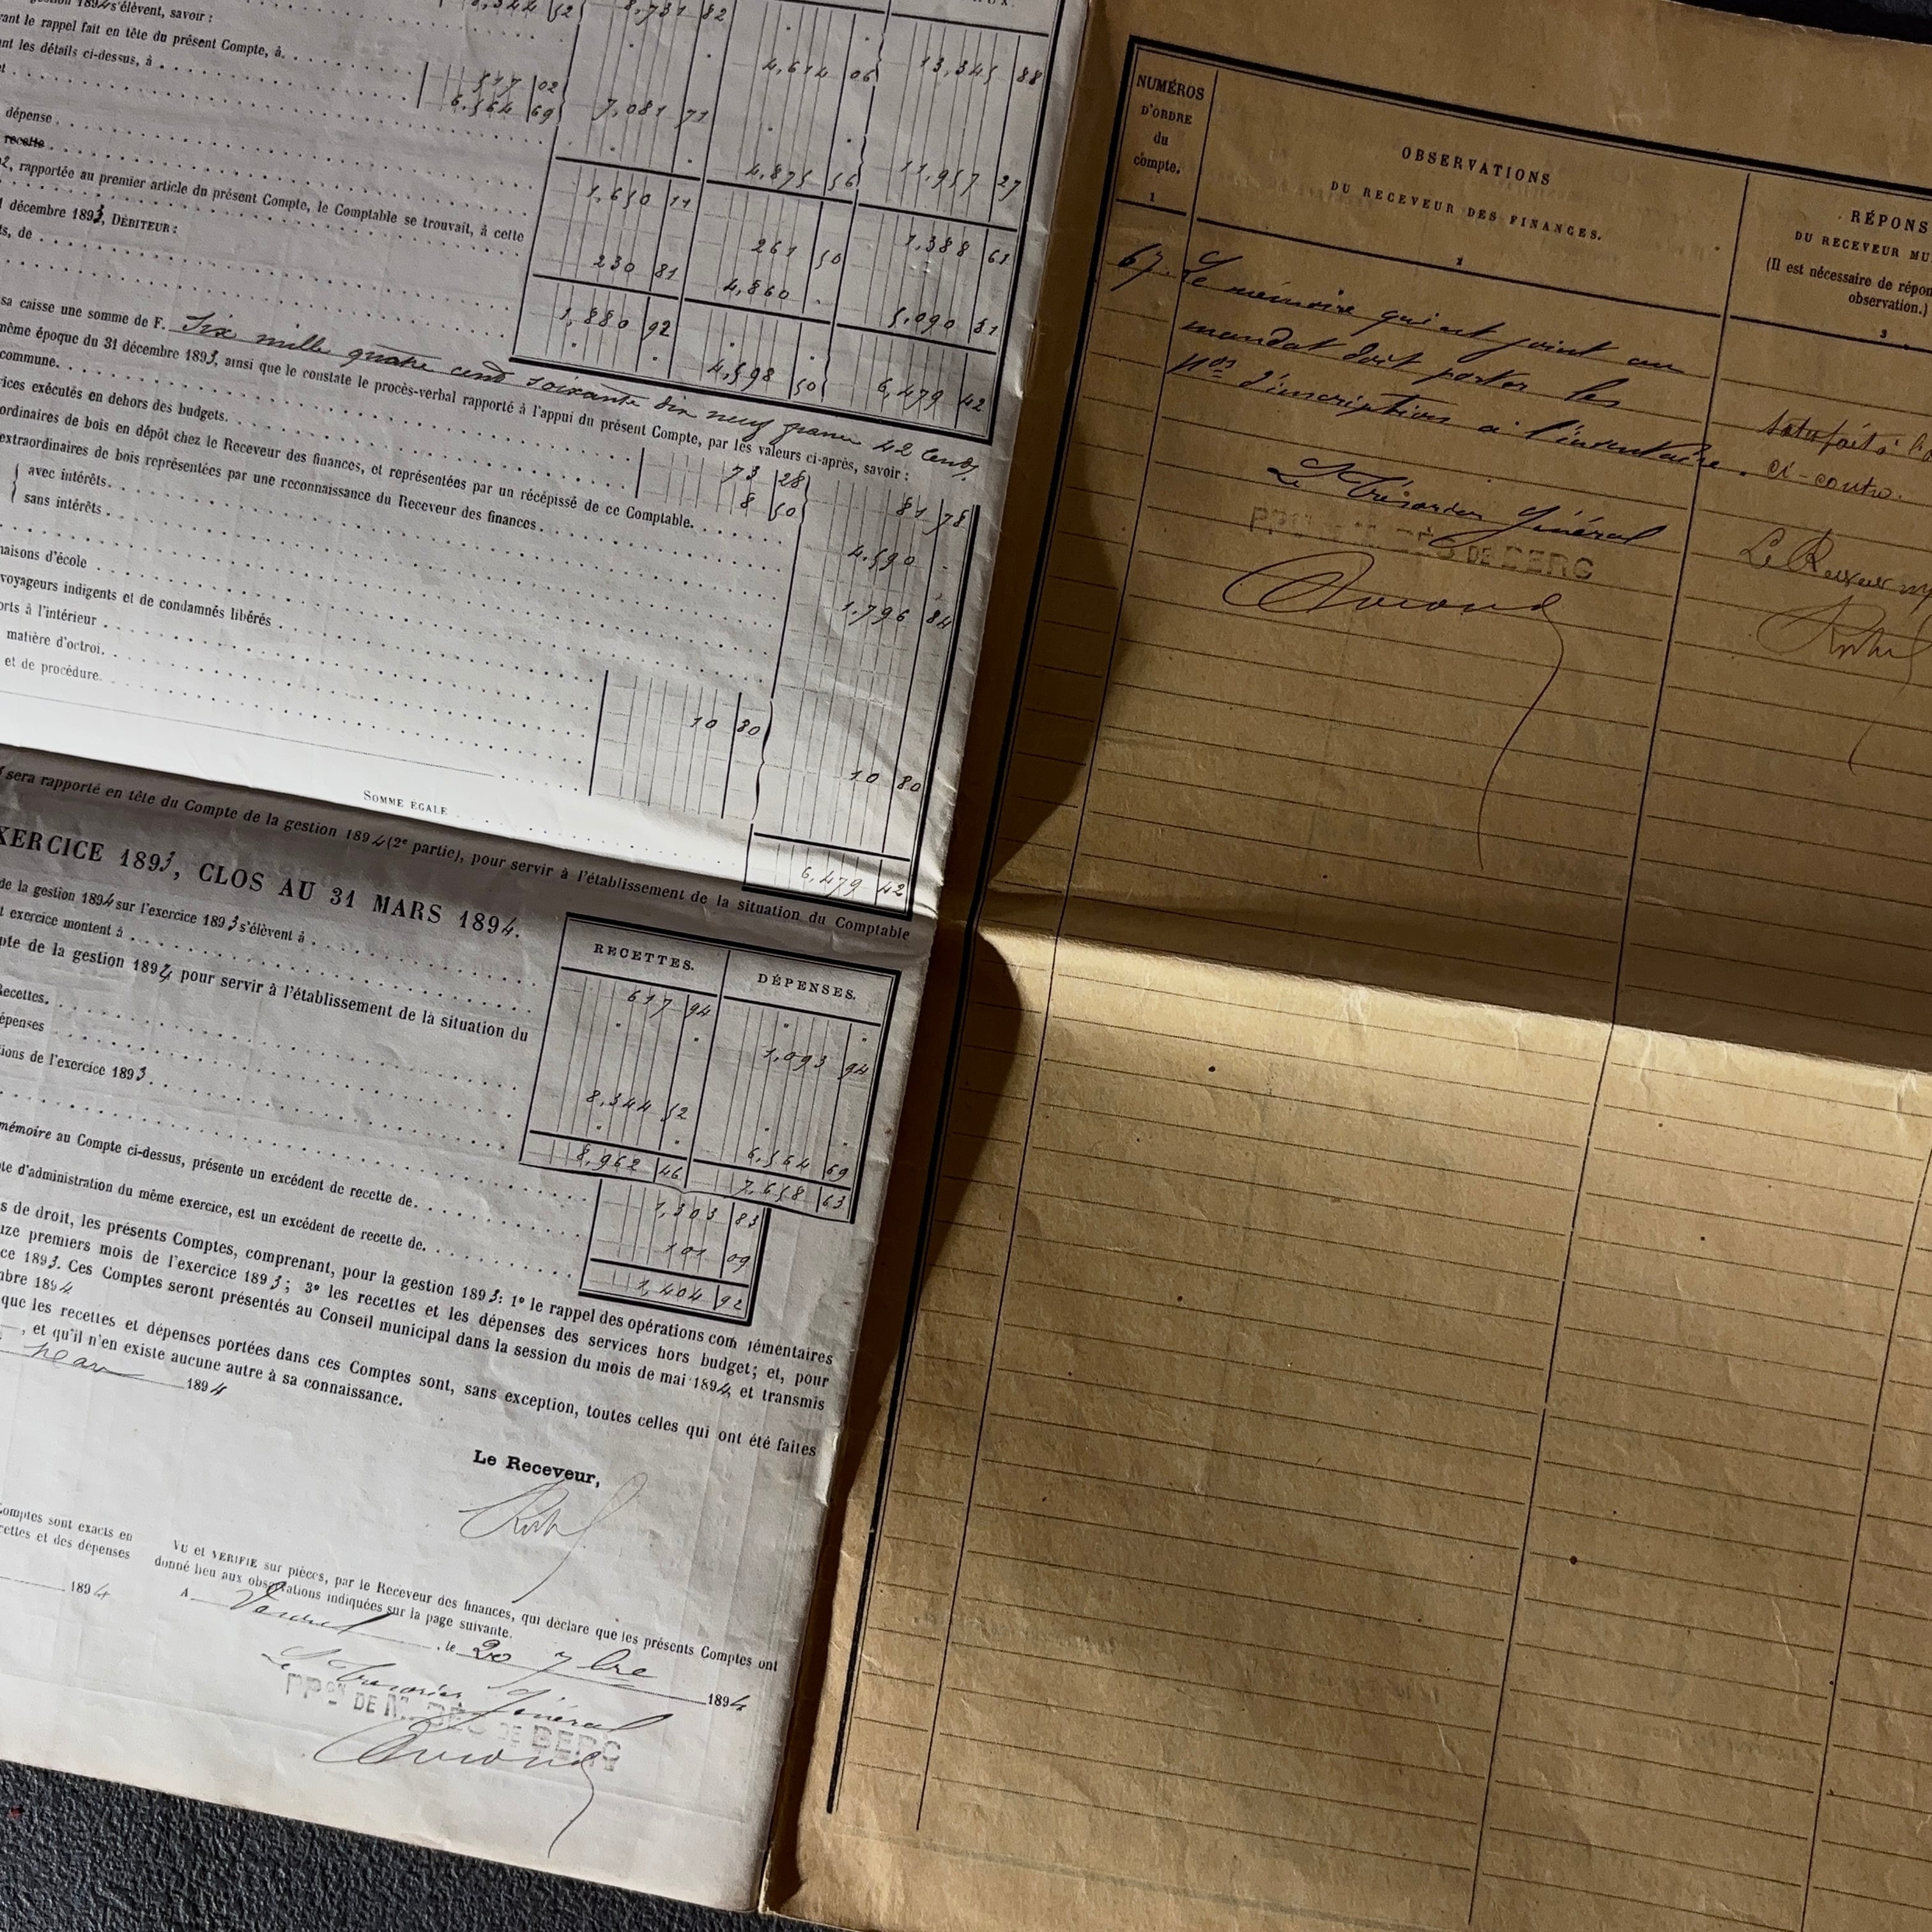 gestion 1894 s'élèvent, savoir :
8,344 52 8,731 82
vant le rappel fait en tête du présent Compte, à
4,614 06 13,345 88
nt les détails ci-dessus, à
517 02
6,564 69 7,081 71
4,875 56 11,957 27
dépense
recette
1,650 11
261 50 1,388 61
2, rapportée au premier article du présent Compte, le Comptable se trouvait, à cette
1 décembre 1893, DÉBITEUR :
230 81 4,860 5,090 81
s, de
1,880 92 4,598 50 6,479 42
sa caisse une somme de F. Six mille quatre cent soixante dix neuf francs 42 cent.
même époque du 31 décembre 1893, ainsi que le constate le procès-verbal rapporté à l'appui du présent Compte, par les valeurs ci-après, savoir :
commune.
73 28
8 50 81 78
vices exécutés en dehors des budgets.
ordinaires de bois en dépôt chez le Receveur des finances, et représentées par un récépissé de ce Comptable.
extraordinaires de bois représentées par une reconnaissance du Receveur des finances
avec intérêts. 4.590
sans intérêts. 1.796 84
maisons d'école
voyageurs indigents et de condamnés libérés
orts à l'intérieur
matière d'octroi.
et de procédure.
10 80
10 80
SOMME EGALE
6,479 42
sera rapporté en tête du Compte de la gestion 1894 (2e partie), pour servir à l'établissement de la situation du Comptable
XERCICE 1893, CLOS AU 31 MARS 1894.
RECETTES. DÉPENSES.
de la gestion 1894 sur l'exercice 1893 s'élèvent à
617 94
t exercice montent à
1,093 94
pte de la gestion 1894 pour servir à l'établissement de la situation du
Recettes.
8,344 52
épenses
6,564 69
tions de l'exercice 1893
8,962 46 7,658 63
mémoire au Compte ci-dessus, présente un excédent de recette de
1,303 83
te d'administration du même exercice, est un excédent de recette de.
101 09
1,404 92
s de droit, les présents Comptes, comprenant, pour la gestion 1893 : 1° le rappel des opérations com lémentaires
uze premiers mois de l'exercice 1893 ; 3° les recettes et les dépenses des services hors budget ; et, pour
ce 1893. Ces Comptes seront présentés au Conseil municipal dans la session du mois de mai 1894, et transmis
mbre 1894
que les recettes et dépenses portées dans ces Comptes sont, sans exception, toutes celles qui ont été faites
, et qu'il n'en existe aucune autre à sa connaissance.
1894
Le Receveur,
Comptes sont exacts en
cettes et des dépenses
1894
VU et VERIFIE sur pièces, par le Receveur des finances, qui déclare que les présents Comptes ont
donné lieu aux observations indiquées sur la page suivante.
A , le 20 7bre 1894
Le Trésorier Général
PPON DE M. DÈS DE BERG
NUMÉROS
D'ORDRE
du
compte.
1
OBSERVATIONS
DU RECEVEUR DES FINANCES.
2
RÉPONS
DU RECEVEUR MU
(Il est nécessaire de répon
observation.)
3
67. Le mémoire qui est joint au
mandat doit porter les
Nos d'inscription à l'inventaire.
Le Trésorier Général
DE BERG
Satisfait à l'o
ci-contre.
Le Receveur